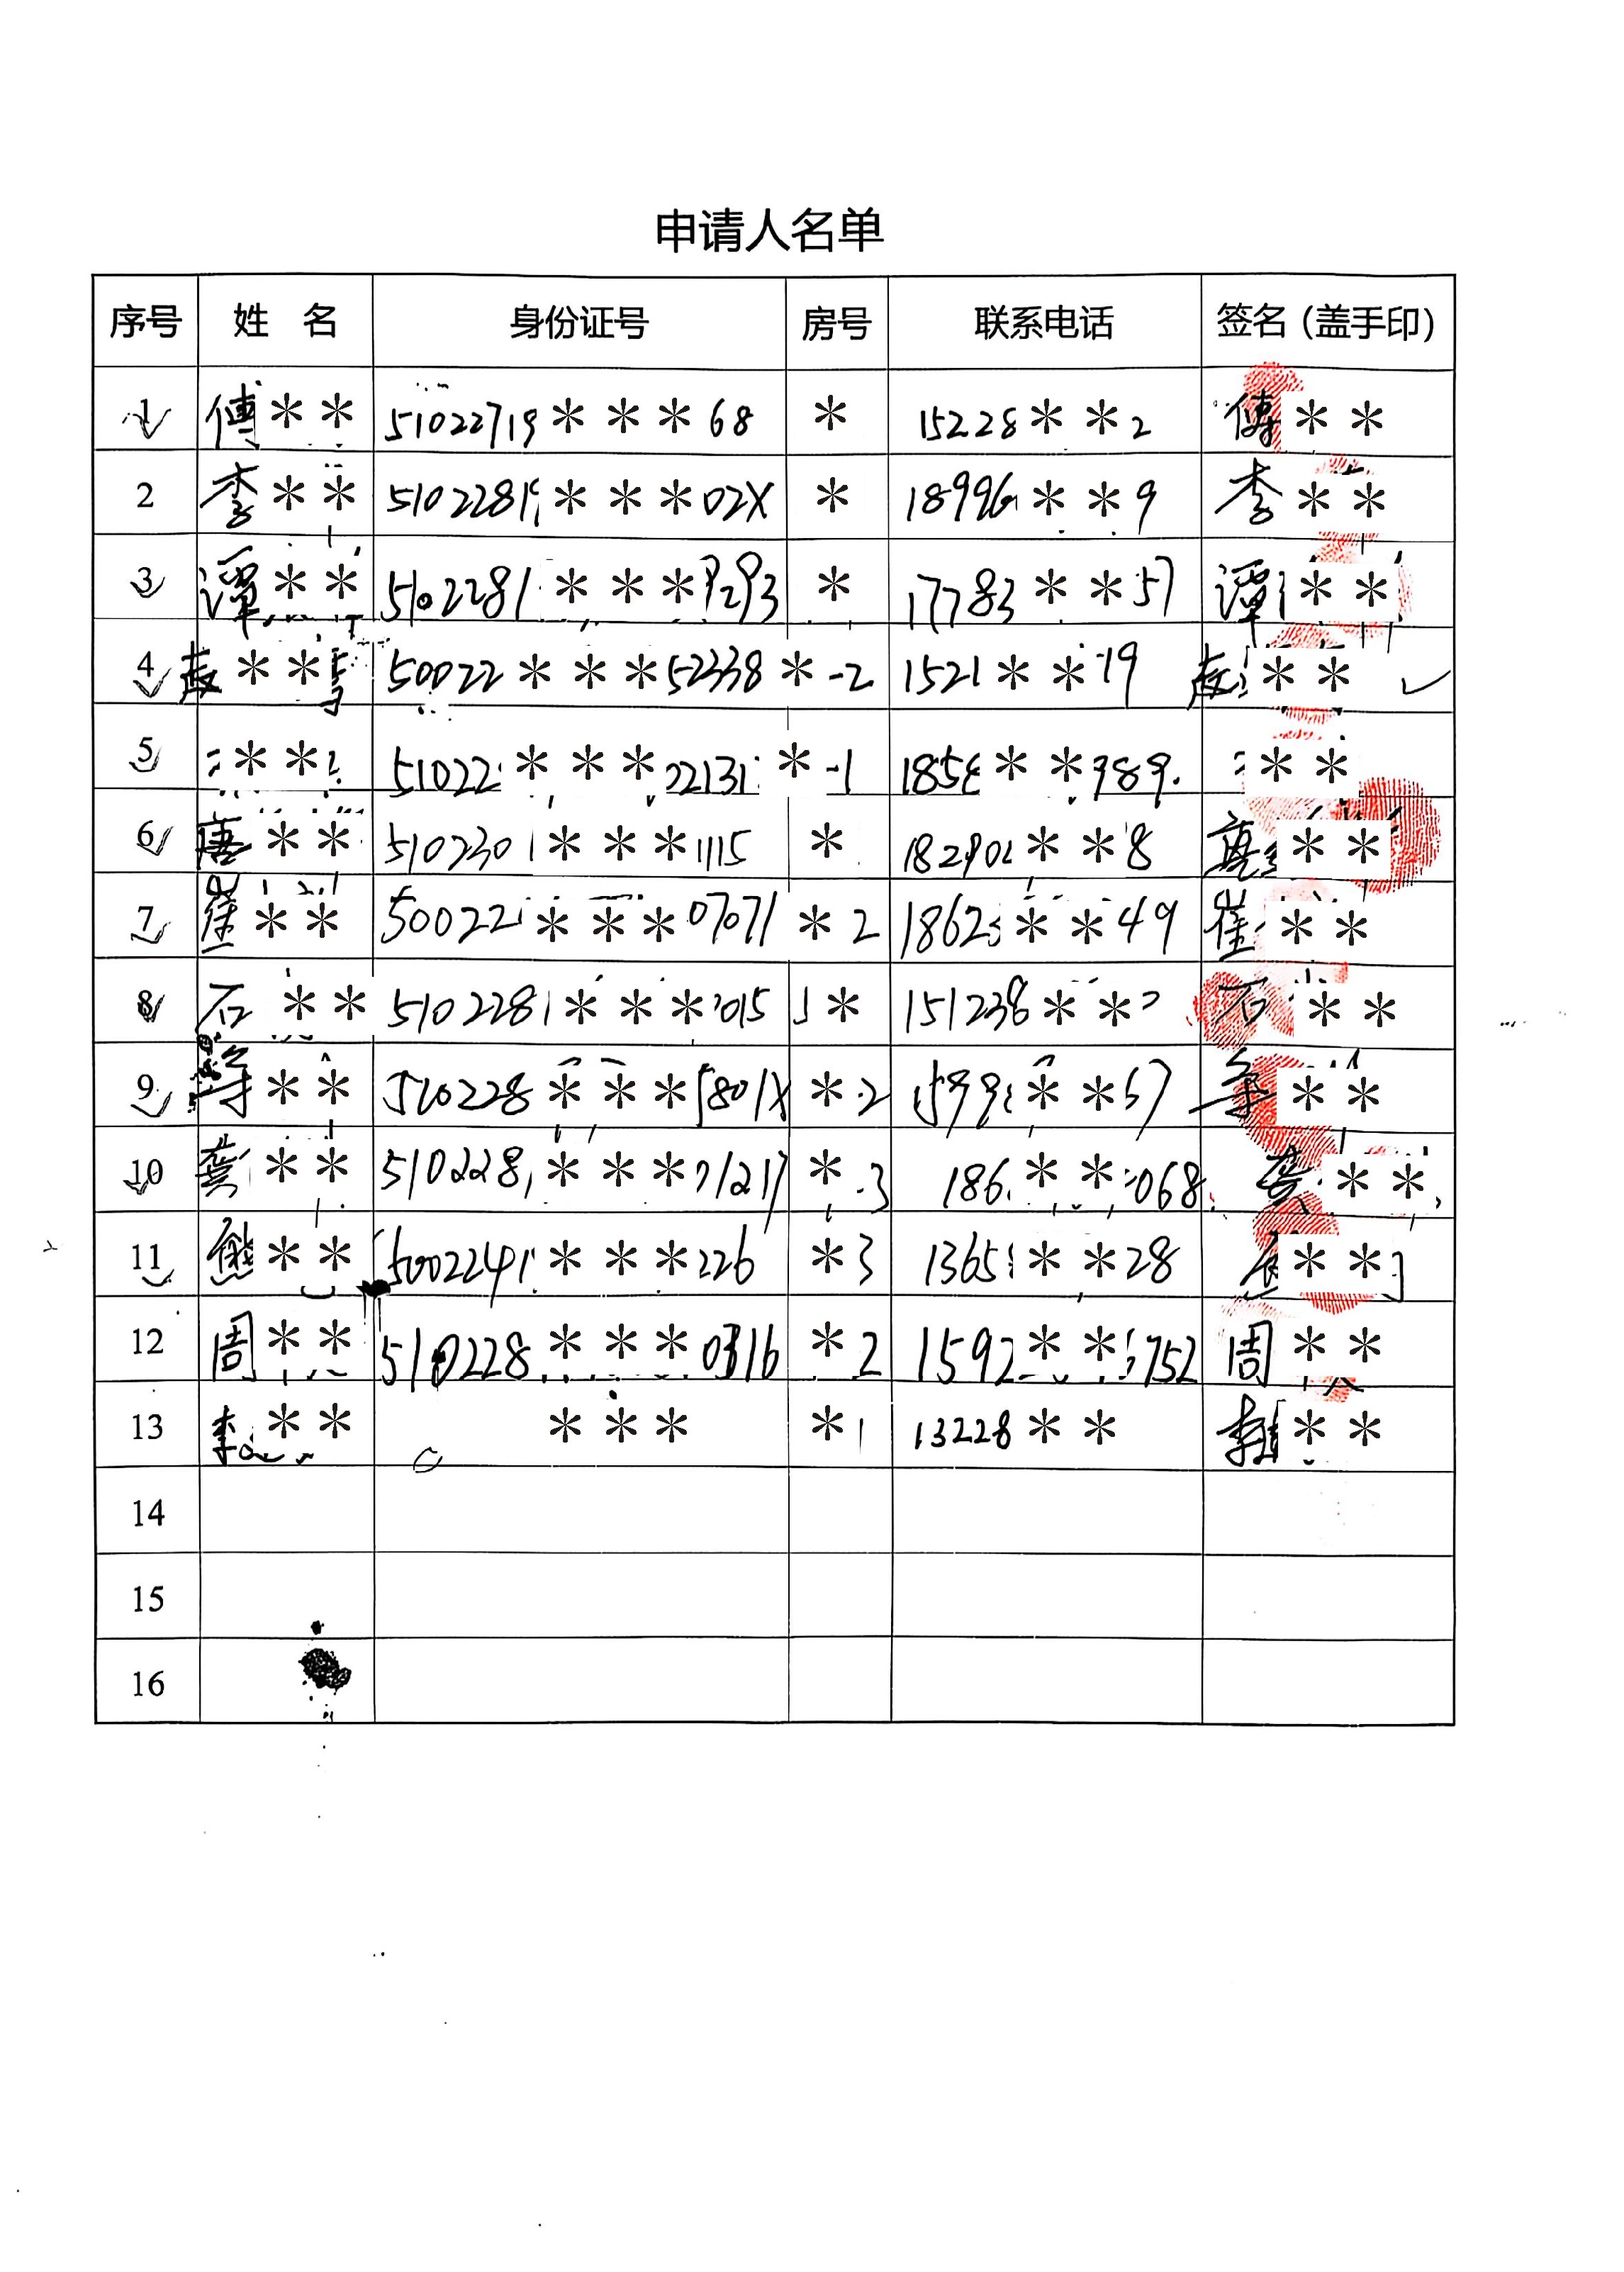 申请人名单
序号 姓 名 身份证号 房号 联系电话 签名（盖手印）
1 傅** 51022719***68 * 15228**2 傅**
2 李** 5102281***02X * 18996**9 李**
3 谭** 5102281***293 * 17783**57 谭**
4 ** 50022***52338 *-2 1521**19 **
5 ** 51022***22131 *-1 185**989 **
6 唐** 510230***1115 * 18290**8 唐**
7 崔** 50022***07071 *2 1862**49 崔**
8 石** 5102281***015 * 151238** 石**
9 ** 510228***5801X *-2 1599**57 **
10 龚** 510228***1217 *-3 186**068 龚**
11 熊** 5002241***226 *3 1365**28 **
12 周** 510228***0316 *2 1592**752 周**
13 李** *** *1 13228** 李**
14
15
16